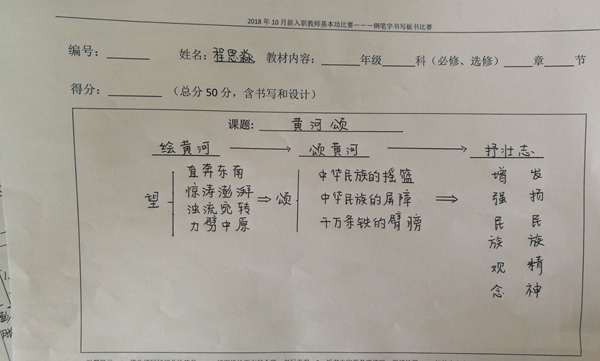 2018年10月新入职教师基本功比赛－－－钢笔字书写板书比赛
编号：______ 姓名：程思淼 教材内容：______年级______科（必修、选修）______章______节
得分：______ （总分50分，含书写和设计）
课题： 黄河颂
绘黄河 → 颂黄河 → 抒壮志
望
直奔东南
惊涛澎湃
浊流宛转
力劈中原
⇒ 颂
中华民族的摇篮
中华民族的屏障
千万条铁的臂膀
⇒
增 发
强 扬
民 民
族 族
观 精
念 神